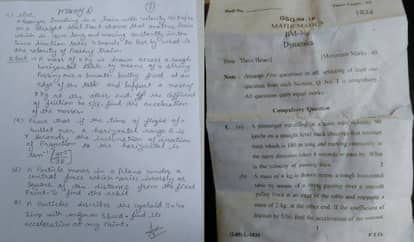 A Passenger travelling in a train with velocity 90 km/hr
on a straight rail track observe that another train
which is 100 m long and moving constantly in the
same direction takes 8 seconds to Pass by what is
the velocity of Passing train.
A mass of 4 kg is drawn across a rough
horizontal table by means of a string
Passing over a smooth Pulley fixed at an
edge of the table and support a mass of
2 kg at the other end. If the coefficient
of friction be
find the acceleration
of the masses.
Prove that if the time of flight of a
bullet over a horizontal range R is
T seconds, the inclination of direction
of Projection to the horizontal is
A Particle moves in a Plane under a
central force which varies inversely as
square of the distance from the fixed
Point to find the orbit
A Particle describes the cycloid
with uniform speed. find its
acceleration at any Point.
Roll No.
1834
MATHEMATICS
Dynamics
Time : Three Hours]
[Maximum Marks : 40
Note : Attempt Five questions in all, selecting at least one
question from each Section. Q. No. 1 is compulsory.
All questions carry equal marks.
Compulsory Question
1. (a) A passenger travelling in a train with velocity 90
km/hr on a straight track observes that another
train which is 100 m long and moving constantly in
the same direction takes 8 seconds to pass by. What
is the velocity of passing train ?
(b) A mass of 4 kg is drawn across a rough horizontal
table by means of a string passing over a smooth
pulley fixed at an edge of the table and supports a
mass of 2 kg. at the other end. If the coefficient of
friction be 5/16, find the acceleration of the masses.
P.T.O.